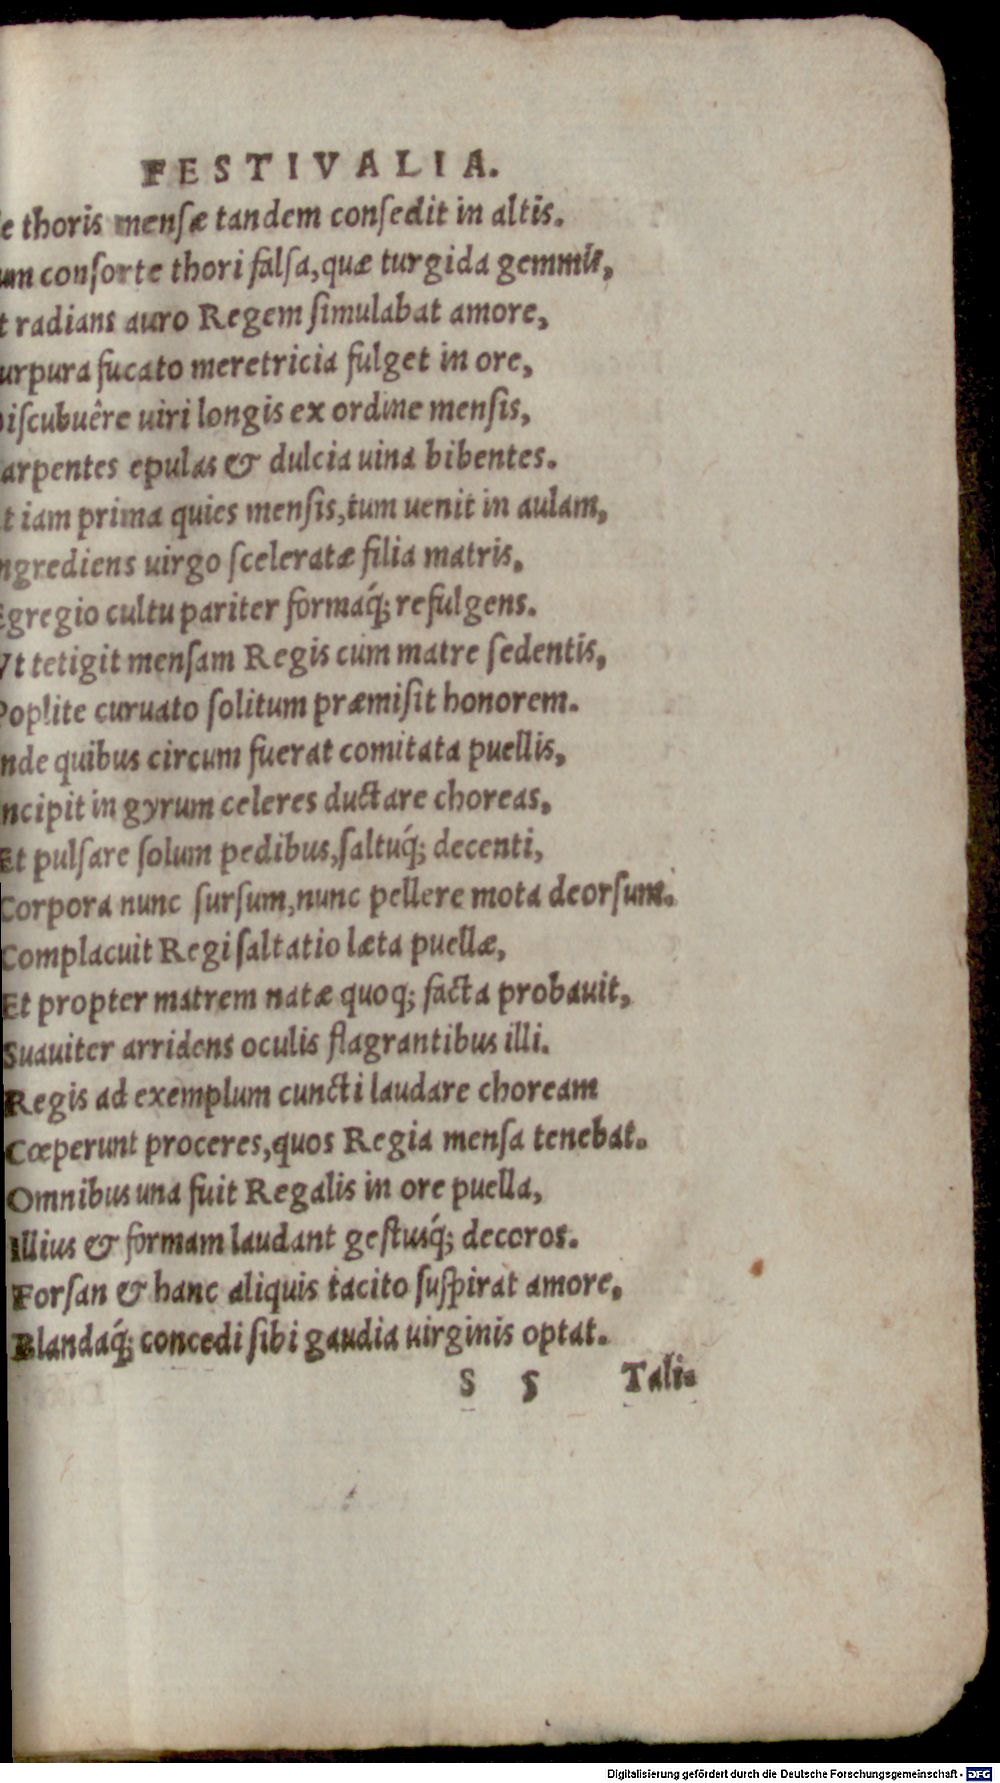 FESTIVALIA.
e thoris mensæ tandem consedit in altis.
um consorte thori falsa, quæ turgida gemmis,
t radians auro Regem simulabat amore,
urpura fucato meretricia fulget in ore,
iscubuêre uiri longis ex ordine mensis,
arpentes epulas & dulcia uina bibentes.
t iam prima quies mensis, tum uenit in aulam,
ngrediens uirgo sceleratæ filia matris,
Egregio cultu pariter formaq́; refulgens.
Vt tetigit mensam Regis cum matre sedentis,
Poplite curuato solitum præmisit honorem.
nde quibus circum fuerat comitata puellis,
ncipit in gyrum celeres ductare choreas,
Et pulsare solum pedibus, saltuq́; decenti,
Corpora nunc sursum, nunc pellere mota deorsum.
Complacuit Regi saltatio læta puellæ,
Et propter matrem natæ quoq; facta probauit,
Suauiter arridens oculis flagrantibus illi.
Regis ad exemplum cuncti laudare choream
Cœperunt proceres, quos Regia mensa tenebat.
Omnibus una fuit Regalis in ore puella,
Illius & formam laudant gestusq́; decoros.
Forsan & hanc aliquis tacito suspirat amore,
Blandaq́; concedi sibi gaudia uirginis optat.
S 5 Tali-
Digitalisierung gefördert durch die Deutsche Forschungsgemeinschaft - DFG